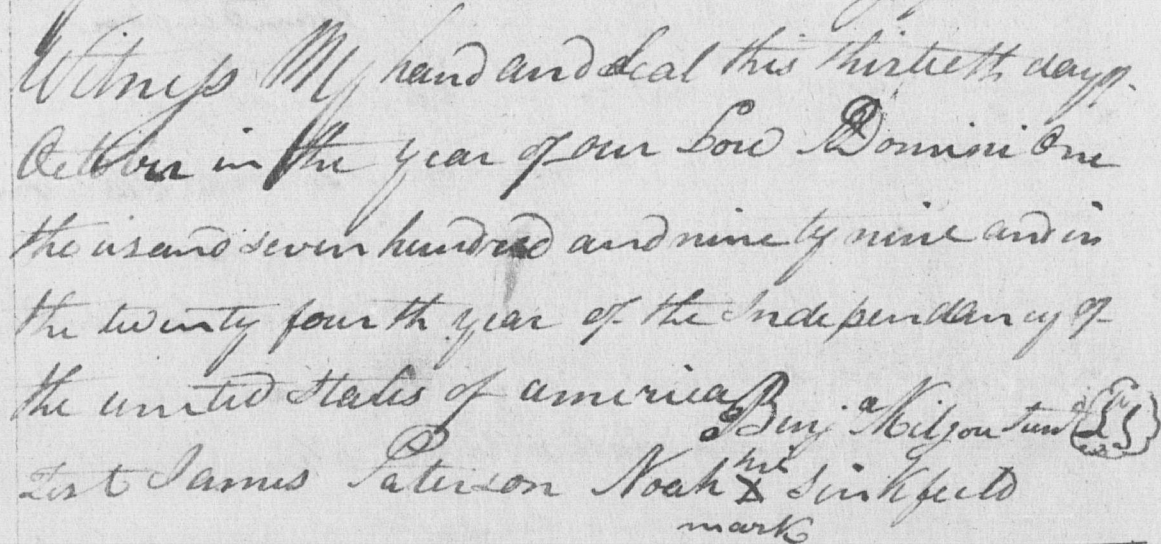 Witness My hand and Seal this thirtieth day of
October in the year of our Lord Domini One
thousand seven hundred and ninety nine and in
the twenty fourth year of the Independancy of
the united States of america Benj.a Kilgou Junr LS
Test James Paterson Noah his X Sinkfeeld
mark